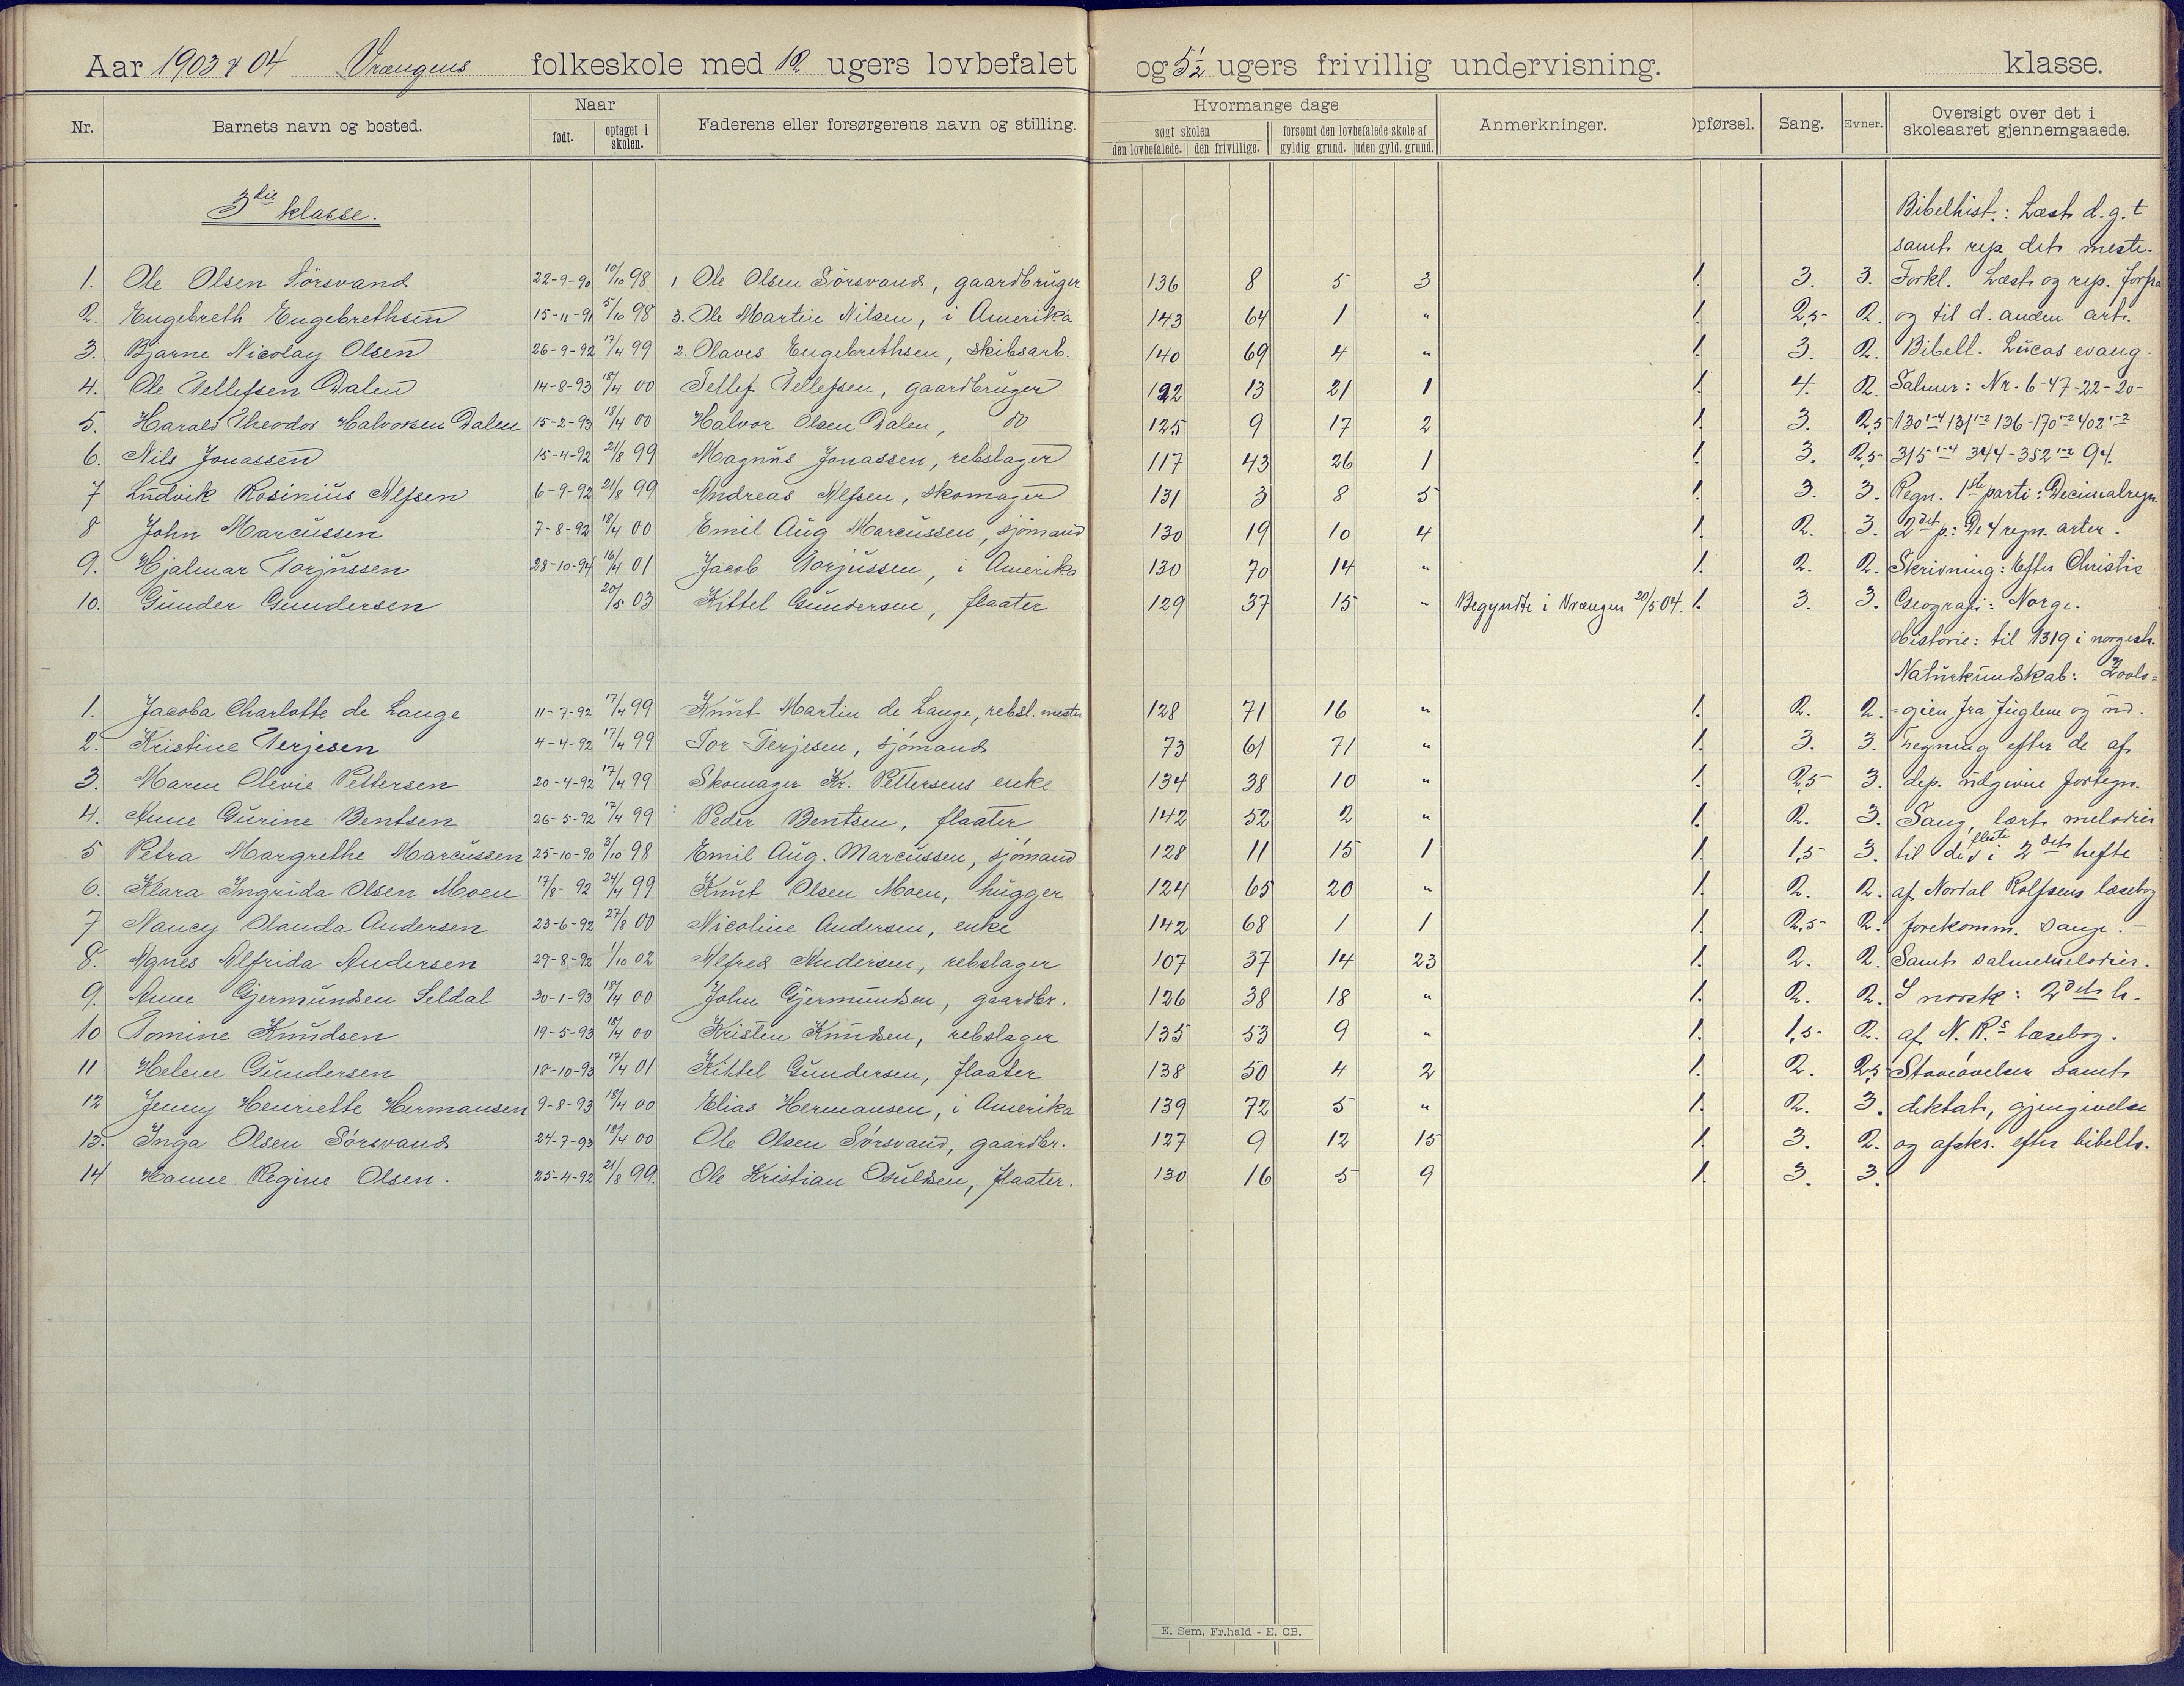 Aar 1903 & 04 Vrængens folkeskole med 12 ugers lovbefalet og 5½ ugers frivillig undervisning. klasse.
Nr. Barnets navn og bosted. Naar født. optaget i skolen. Faderens eller forsørgerens navn og stilling. Hvormange dage søgt skolen den lovbefalede. den frivillige. forsømt den lovbefalede skole af gyldig grund. uden gyld. grund. Anmerkninger. Opførsel. Sang. Evner. Oversigt over det i skoleaaret gjennemgaaede.
3die klasse. Bibelhist.: Læst d. g. t
samt rep det meste.
1. Ole Olsen Sörsvand 22-9-90 10/10 98 1 Ole Olsen Sörsvand, gaardbruger 136 8 5 3 1. 3. 3. Forkl. Læst og rep. forfra
2. Engebreth Engebrethsen 15-11-91 5/10 98 3. Ole Martin Nilsen, i Amerika 143 64 1 " 1. 2,5 2. og til d. anden art.
3. Bjarne Nicolay Olsen 26-9-92 17/4 99 2. Olaves Engebrethsen, skibsarb. 140 69 4 " 1. 3. 2. Bibell. Lucas evang.
4. Ole Tellefsen Dalen 14-8-93 18/4 00 Tellef Tellefsen, gaardbruger 122 13 21 1 1. 4. 2. Salmer: Nr. 6-47-22-20-
5. Harald Theodor Halvorsen Dalen 15-2-93 18/4 00 Halvor Olsen Dalen, do 125 9 17 2 1. 3. 2,5 130 1-4 131 1-2 136-170 1-2 402 1-2
6. Nils Jonassen 15-4-92 21/8 99 Magnus Jonassen, rebslager 117 43 26 1 1. 3. 2,5 315 1-4 344-352 1-2 94.
7 Ludvik Rosinius Alfsen 6-9-92 21/8 99 Andreas Alfsen, skomager 131 3 8 5 1. 3. 3. Regn. 1ste parti: Decimalregn.
8 John Marcussen 7-8-92 18/4 00 Emil Aug Marcussen, sjömand 130 19 10 4 1. 2. 3. 2det p: De 4 regn. arter.
9. Hjalmar Torjussen 28-10-94 16/4 01 Jacob Torjussen, i Amerika 130 70 14 " 1. 2. 2. Skrivning: Efter Christie
10. Gunder Gundersen 20/5 03 Kittel Gundersen, flaater 129 37 15 " Begyndte i Vrængen 20/5 04. 1. 3. 3. Geografi: Norge.
Historie: til 1319 i norgesh.
Naturkundskab: Zoolo=
1. Jacoba Charlotte de Lange 11-7-92 17/4 99 Knut Martin de Lange, rebsl. mester 128 71 16 " 1. 2. 2. -gien fra fuglene og ud.
2. Kristine Terjesen 4-4-92 17/4 99 Tor Terjesen, sjömand 73 61 71 " 1. 3. 3. Tegning efter de af
3. Maren Olevie Pettersen 20-4-92 17/4 99 Skomager Kr. Pettersens enke 134 38 10 " 1. 2,5 3. dep. udgivne fortegn.
4. Anne Gurine Bentsen 26-5-92 17/4 99 Peder Bentsen, flaater 142 52 2 " 1. 2. 3. Sang, lært melodier
5 Petra Margrethe Marcussen 25-10-90 3/10 98 Emil Aug. Marcussen, sjömand 128 11 15 1 1. 1,5 3. til de fleste i 2det hefte
6. Klara Ingrida Olsen Moen 17/8-92 24/4 99 Knut Olsen Moen, hugger 124 65 20 " 1. 2. 2. af Nordal Rolfsens læsebog
7 Nancy Olanda Andersen 23-6-92 27/8 00 Nicoline Andersen, enke 142 68 1 1 1. 2,5 2. forekomm. sange.-
8. Agnes Alfrida Andersen 29-8-92 1/10 02 Alfred Andersen, rebslager 107 37 14 23 1. 2. 2. Samt salmemelodier.
9. Anne Gjermundsen Seldal 30-1-93 18/4 00 John Gjermundsen, gaardbr. 126 38 18 " 1. 2. 2. I norsk: 2det h.
10 Tomine Knudsen 19-5-93 18/4 00 Kristen Knudsen, rebslager 135 53 9 " 1. 1,5 2. af N. R.s læsebog.
11 Helene Gundersen 18-10-93 17/4 01 Kittel Gundersen, flaater 138 50 4 2 1. 2. 2,5 Staveövelser samt
12 Jenny Henriette Hermansen 9-8-93 18/4 00 Elias Hermansen, i Amerika 139 72 5 " 1. 2. 3. diktat, gjengivelse
13. Inga Olsen Sörsvand 24-7-93 18/4 00 Ole Olsen Sörsvand, gaardbr. 127 9 12 15 1. 3. 2. og afskr. efter bibelh.
14 Hanne Regine Olsen. 25-4-92 21/8 99. Ole Kristian Osuldsen, flaater. 130 16 5 9 1. 3. 3.
E. Sem, Fr.hald - E. CB.